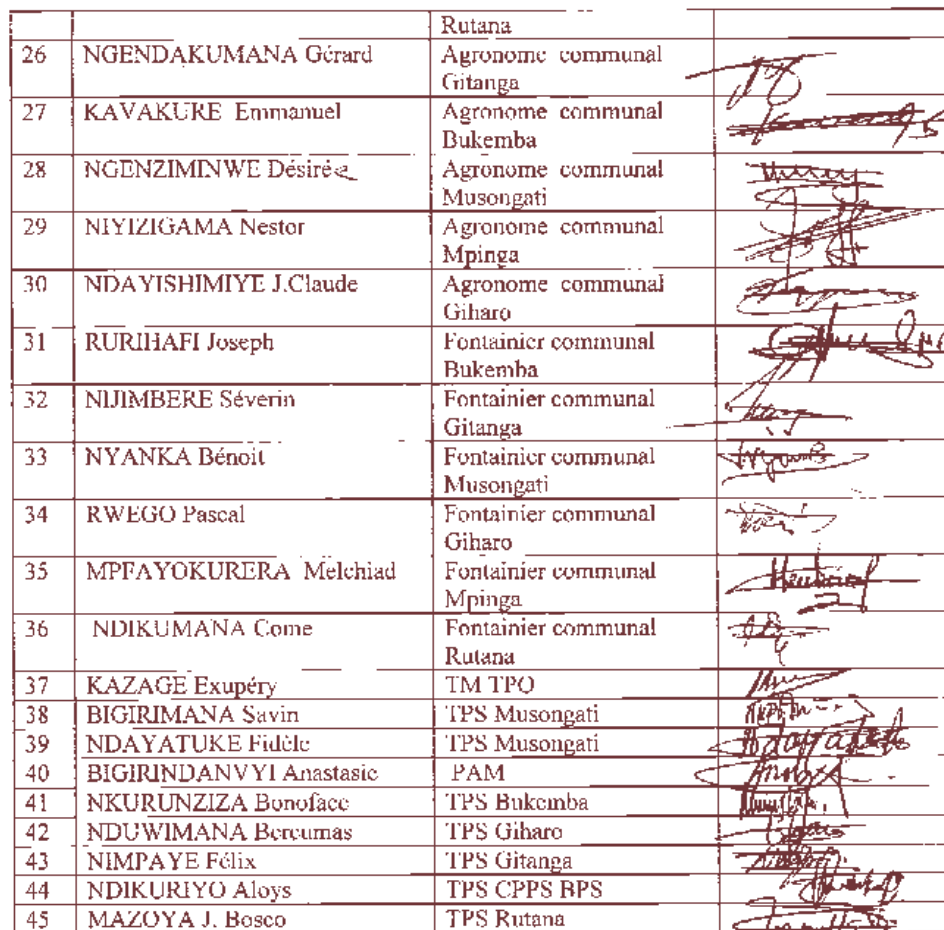 Rutana
26 NGENDAKUMANA Gérard Agronome communal
Gitanga
27 KAVAKURE Emmanuel Agronome communal
Bukemba
28 NGENZIMINWE Désirée Agronome communal
Musongati
29 NIYIZIGAMA Nestor Agronome communal
Mpinga
30 NDAYISHIMIYE J.Claude Agronome communal
Giharo
31 RURIHAFI Joseph Fontainier communal
Bukemba
32 NIJIMBERE Séverin Fontainier communal
Gitanga
33 NYANKA Bénoit Fontainier communal
Musongati
34 RWEGO Pascal Fontainier communal
Giharo
35 MPFAYOKURERA Melchiad Fontainier communal
Mpinga
36 NDIKUMANA Come Fontainier communal
Rutana
37 KAZAGE Exupéry TM TPO
38 BIGIRIMANA Savin TPS Musongati
39 NDAYATUKE Fidèle TPS Musongati
40 BIGIRINDANVYI Anastasie PAM
41 NKURUNZIZA Bonoface TPS Bukemba
42 NDUWIMANA Bereumas TPS Giharo
43 NIMPAYE Félix TPS Gitanga
44 NDIKURIYO Aloys TPS CPPS BPS
45 MAZOYA J. Bosco TPS Rutana